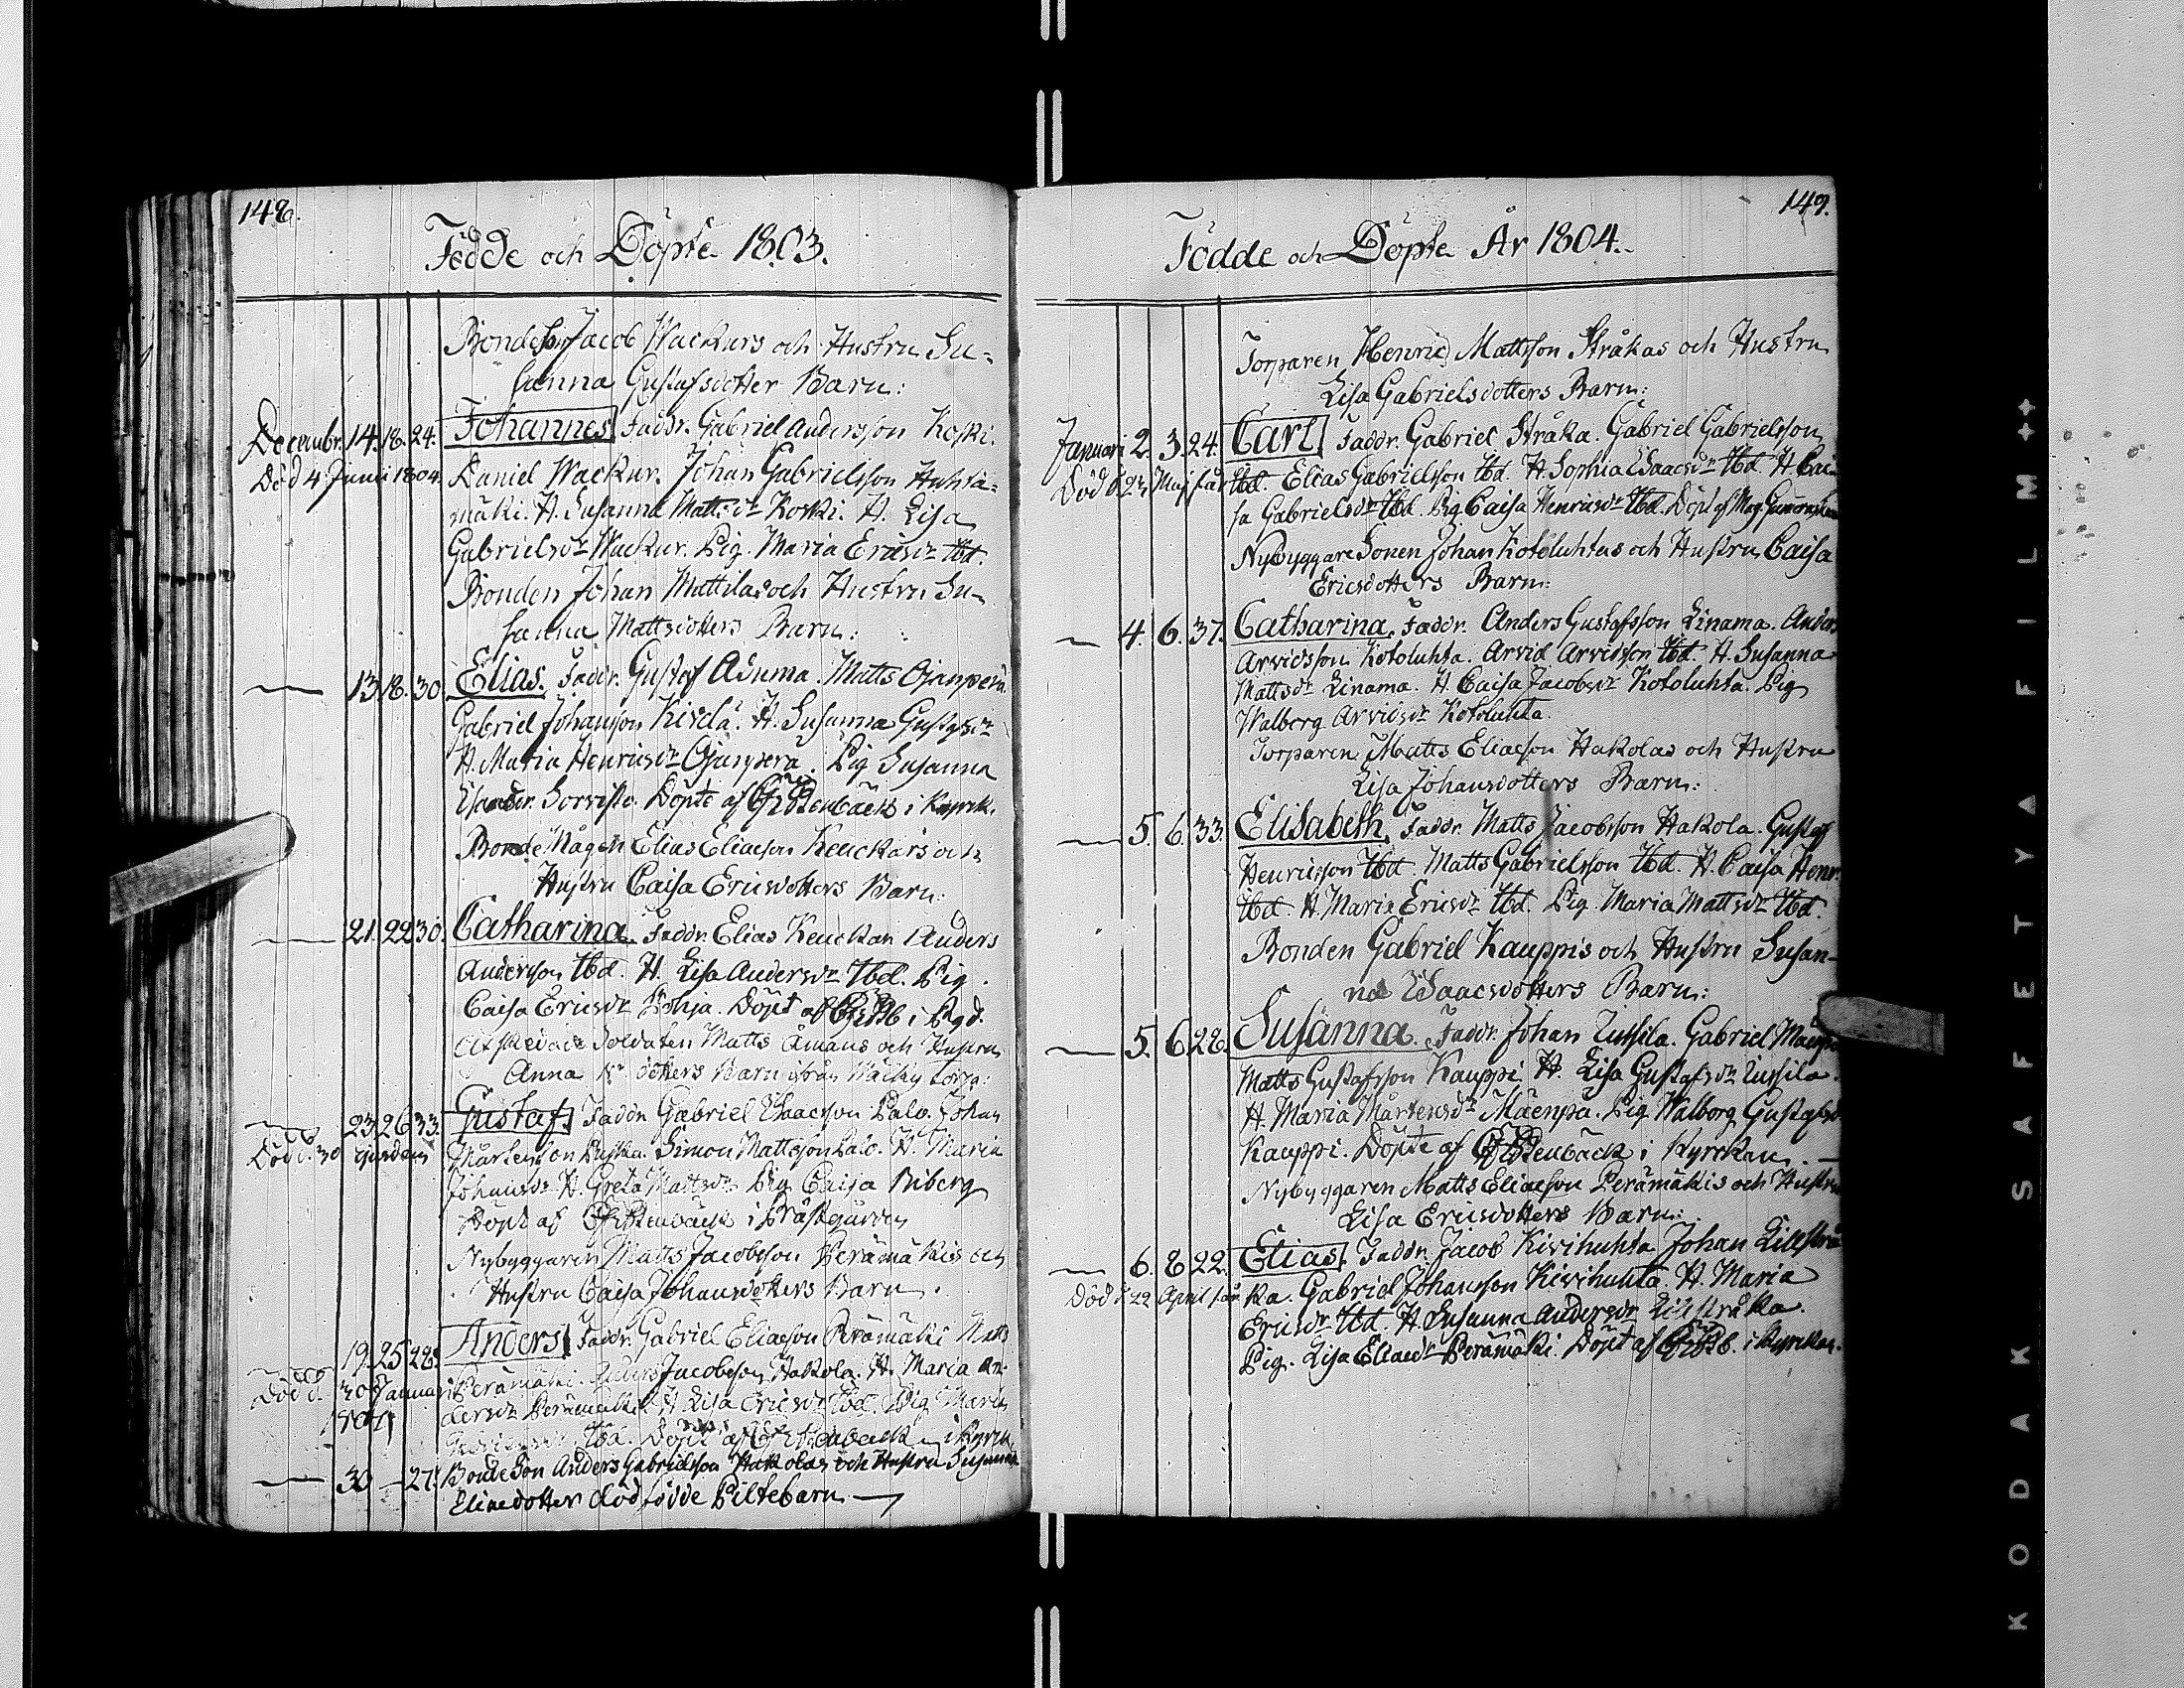 148.
Födde och Döpte 1803.
Bondeson Jacob Wackurs och Hustru Su-
sanna Gustafsdotter Barn:
Decembr. 14. 18. 24. Johannes Faddr. Gabriel Andersson Koski.
Död 4 Junii 1804. Daniel Wackur. Johan Gabrielsson Huhta-
mäki. H. Susanna Mattsdr Koski. H. Lisa
Gabrielsdr Wackur. Pig. Maria Ericsdr Ibd.
Bonden Johan Mattilas och Hustru Su-
sanna Mattsdotters Barn:
— 13 18. 30 Elias. Faddr. Gustaf Matts Ojanperä
Gabriel Johansson Kivelä. H. Susanna Gustafsdr
H. Maria Henricsdr Ojanperä. Pig Susanna
Döpte af i Kyrck.
Bonde Mågen Elias Eliasson Keuckars och
Hustru Caisa Ericsdotters Barn:
— 21. 22 30. Catharina. Faddr. Elias Keuckar Anders
Andersson Ibd. H. Lisa Andersdr Ibd. Pig.
Caisa Ericsdr Döpt af i Pgd.
Afskedade Soldaten Matts Åmans och Hustru
Anna dotters Barn ifrån
— 23 26 33. Gustaf. Faddr. Gabriel Isaacsson Palo. Johan
Död d. 30 Simon Mattsson Palo. H. Maria
Johansdr H. Greta Mattsdr Pig Caisa Riberg
Döpt af i Prästgården
Nybyggaren Matts Jacobsson Perämäkis och
Hustru Caisa Johansdotters Barn.
19. 25 28. Anders. Faddr. Gabriel Eliasson Perämäki Matts
Död d. 30 Januarii Perämäki. Anders Jacobsson Hakola. H. Maria An-
dersdr Perämäki. H Lisa Ericsdr Ibd. Pig Maria
Ibd. Döpt af i Kyrck.
— 30 — 27. Bonde Son Anders Gabrielsson Hakolas och Hustru Susanna
Eliaedotter död födde Piltebarn —
149.
Födde och Döpte År 1804.
Torparen Henric Mattsson Stråkas och Hustru
Lisa Gabrielsdotters Barn:
Januari 2. 3. 24. Carl. Faddr. Gabriel Stråka. Gabriel Gabrielsson
Död d. 23 Maj Ibd. Elias Gabrielsson Ibd. H. Sophia Isaacsdr Ibd. H Cai-
sa Gabrielsdr Ibd. Pig Caisa Henricsdr Ibd. Döpt af Mag.
Nybyggare Sonen Johan Kotoluhtas och Hustru Caisa
Ericsdotters Barn:
— 4. 6. 37. Catharina. Faddr. Anders Gustafsson Linama. Anders
Arvidsson Kotoluhta. Arvid Arvidsson Ibd. H. Susanna
Mattsdr Linama. H. Caisa Jacobsdr Kotoluhta. Pig
Walborg Arvidsdr Kotoluhta.
Torparen Matts Eliasson Hakolas och Hustru
Lisa Johansdotters Barn:
— 5. 6. 33. Elisabeth. Faddr. Matts Jacobsson Hakola. Gustaf
Henricsson Ibd. Matts Gabrielsson Ibd. H. Caisa Henr.
Ibd. H. Maria Ericsdr Ibd. Pig Maria Mattsdr Ibd.
Bonden Gabriel Kauppis och Hustru Susan-
na Isaacsdotters Barn:
— 5. 6 28. Susanna. Faddr. Johan Jussila. Gabriel Mäenpä
Matts Gustafsson Kauppi. H. Lisa Gustafsdr Jussila.
H. Maria Mårtensdr Mäenpä. Pig Walborg Gustafsd
Kauppi. Döpte af i Kyrckan. —
Nybyggaren Matts Eliasson Perämäkis och Hustru
Lisa Ericsdotters Barn:
— 6. 8 22. Elias. Faddr. Jacob Kivihuhta Johan Lillstrå
Död d. 22 April ka. Gabriel Johansson Kivihuhta. H. Maria
Ericsdr Ibd. H Susanna Andersdr Lillstråka.
Pig. Lisa Eliaedr Perämäki. Döpt af i Kyrckan.
KODAK SAFETY FILM